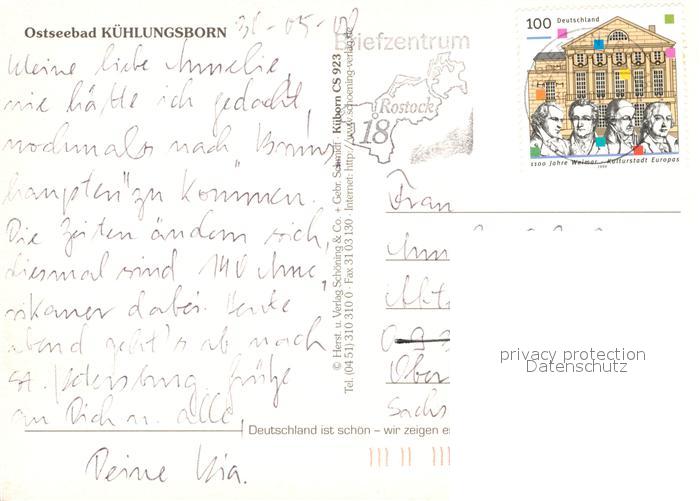 Ostseebad KÜHLUNGSBORN
31-05-00
Meine liebe Annelie,
nie hätte ich gedacht,
nochmals nach "Bruns
haupten" zu kommen.
Die Zeiten ändern sich,
diesmal sind 140 Ame,
rikaner dabei. Heute
abend geht's ab nach
St. Petersburg. Grüße
an Dich u. alle,
Deine
© Herst. u. Verlag Schöning & Co. + Gebr. Schmidt · Küborn CS 923
Tel. (04 51) 310 310 0 · Fax 31 03 130 · Internet: http://www.schoening-verlag.de
Briefzentrum
Rostock
18
100 Deutschland
1100 Jahre Weimar - Kulturstadt Europas
1999
Frau
Ober
Sachs
privacy protection
Datenschutz
Deutschland ist schön – wir zeigen e